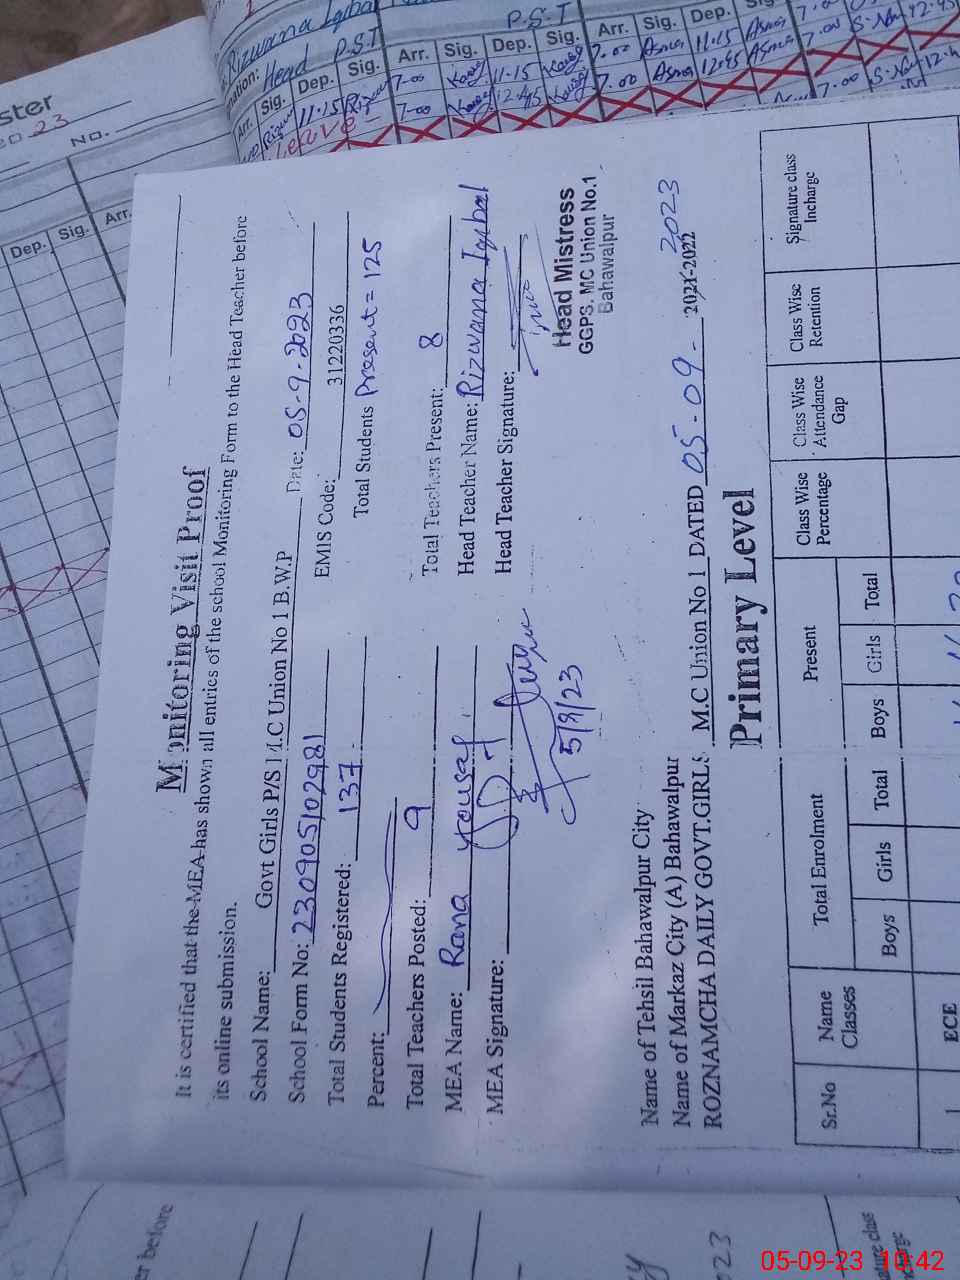 Rizwana Iqbal P.S.T
Head P.S.T
Arr. Sig. Dep. Sig. Arr. Sig. Dep. Sig. Arr. Sig. Dep.
11.15 7-00 11.15 7.00 Asma 11.15 Asma 7.00
7.00 12.45 7.00 Asma 12.45 Asma 7.00
Leave
23
No.
Dep. Sig. Arr.
Monitoring Visit Proof
It is certified that the MEA has shown all entries of the school Monitoring Form to the Head Teacher before
its online submission.
School Name: Govt Girls P/S M.C Union No 1 B.W.P Date: 05-9-2023
School Form No: 230905102981 EMIS Code: 31220336
Total Students Registered: 137 Total Students Present = 125
Percent:
Total Teachers Posted: 9 Total Teachers Present: 8
MEA Name: Rana yousaf Head Teacher Name: Rizwana Iqbal
MEA Signature: Head Teacher Signature:
5/9/23
Head Mistress
GGPS. MC Union No.1
Bahawalpur
Name of Tehsil Bahawalpur City
Name of Markaz City (A) Bahawalpur
ROZNAMCHA DAILY GOVT.GIRLS M.C Union No 1 DATED 05-09- 2021-2022 2023
Primary Level
Sr.No Name Classes Total Enrolment Present Class Wise Percentage Class Wise Attendance Gap Class Wise Retention Signature class Incharge
Boys Girls Total Boys Girls Total
1 ECE
er before
23
ature class
05-09-23 10:42